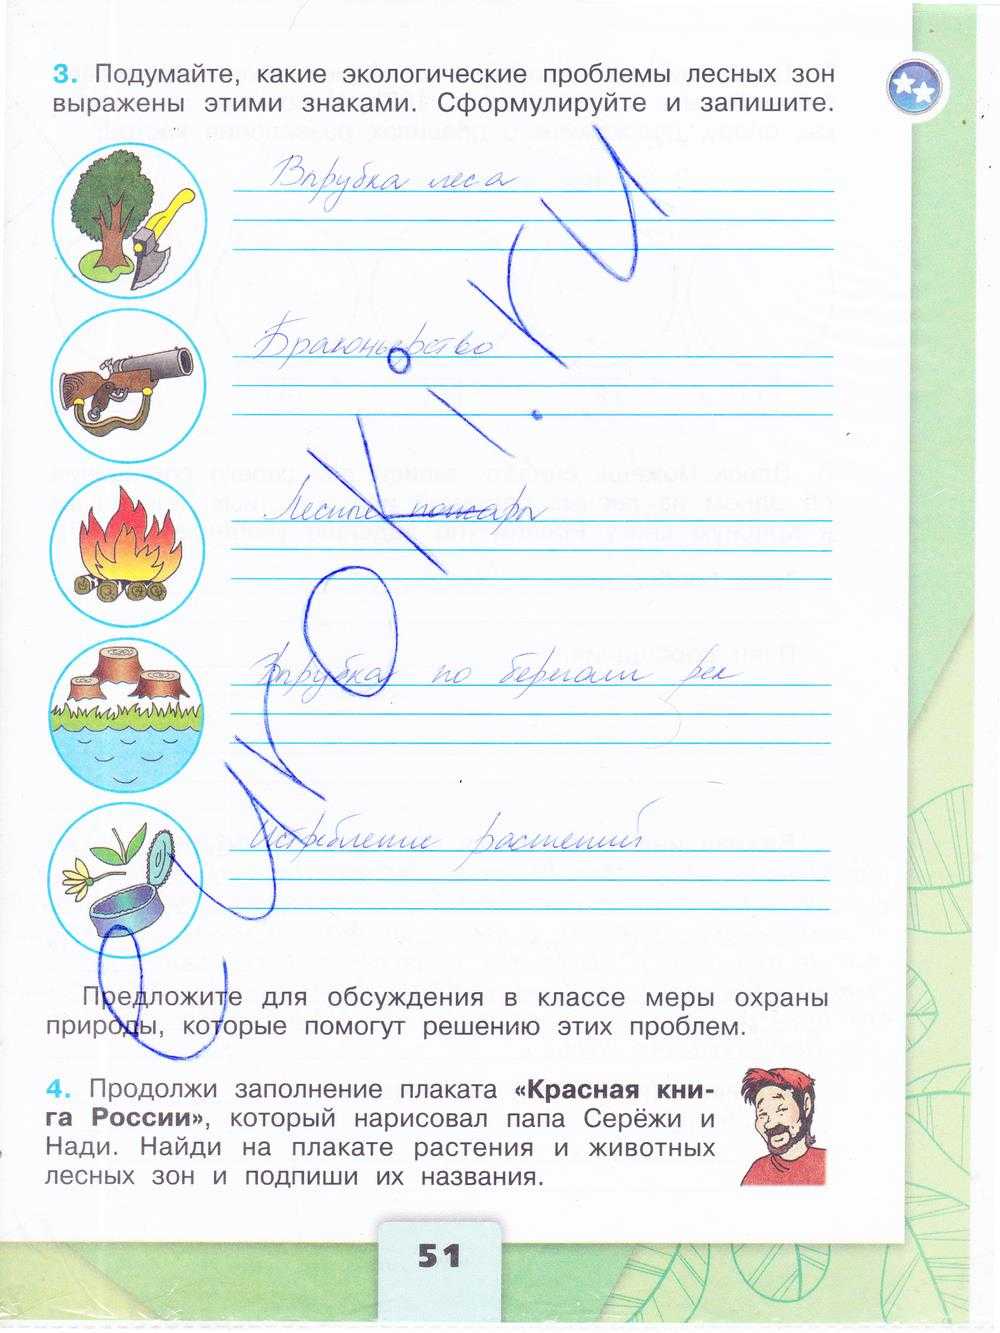 3. Подумайте, какие экологические проблемы лесных зон
выражены этими знаками. Сформулируйте и запишите.
Вырубка леса
Браконьерство
Лесные пожары
Вырубка по берегам рек
Истребление растений
euroki.ru
Предложите для обсуждения в классе меры охраны
природы, которые помогут решению этих проблем.
4. Продолжи заполнение плаката «Красная кни-
га России», который нарисовал папа Серёжи и
Нади. Найди на плакате растения и животных
лесных зон и подпиши их названия.
51